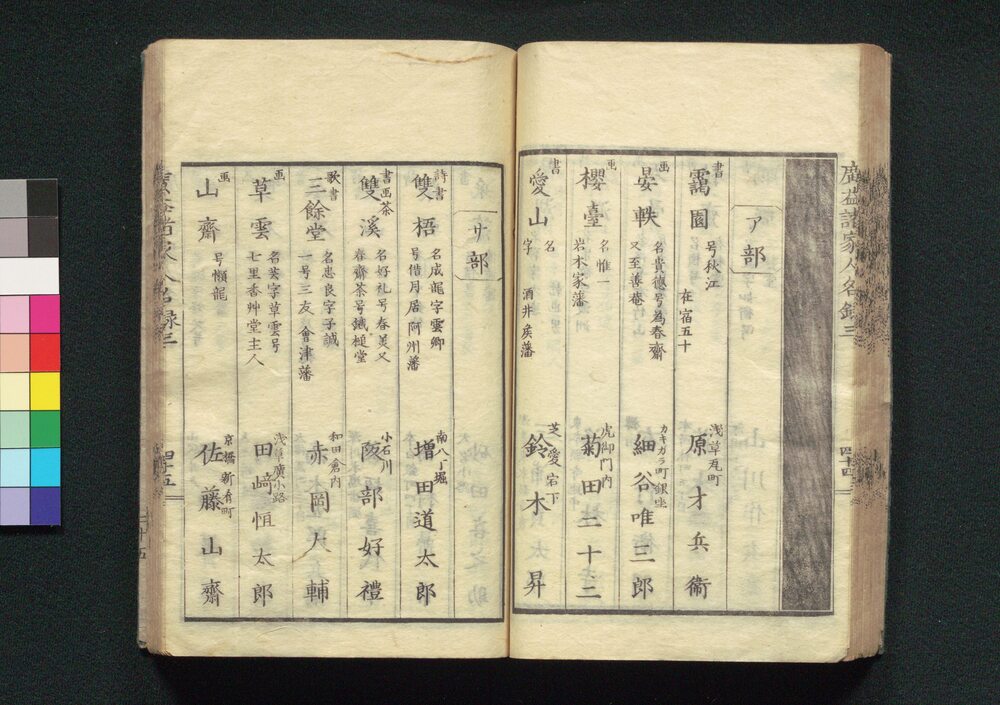 廣益諸家人名錄三
四十四
ア部
書
靄園
号秋江
在宿五十
浅草瓦町
原才兵衞
画
晏軼
名貴德号為春齋
又至善菴
カキガラ町銀座
細谷唯三郎
画
櫻臺
名惟一
岩木家藩
虎御門内
菊田三十三
書
愛山
名
字
酒井矦藩
芝愛宕下
鈴木昇
サ部
詩書
雙梧
名成龍字雲卿
号借月居阿州藩
南八丁堀
增田道太郎
書画茶
雙溪
名好礼号春美又
春齋茶号鐵槌堂
小石川
阪部好禮
歌書
三餘堂
名忠良字子誠
一号三友會津藩
和田倉内
赤岡大輔
画
草雲
名芸字草雲号
七里香艸堂主人
浅草廣小路
田﨑恒太郎
画
山齋
号懶龍
京橋新肴町
佐藤山齋
四十五